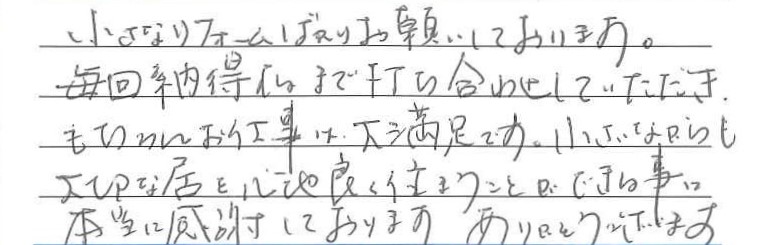 小さなリフォームばかりお願いしております。
毎回納得行くまで打ち合わせしていただき、
もちろんお仕事は、大満足です。小さいながらも
ステキな居を心地良く住まうことができる事に
本当に感謝しております ありがとうございます